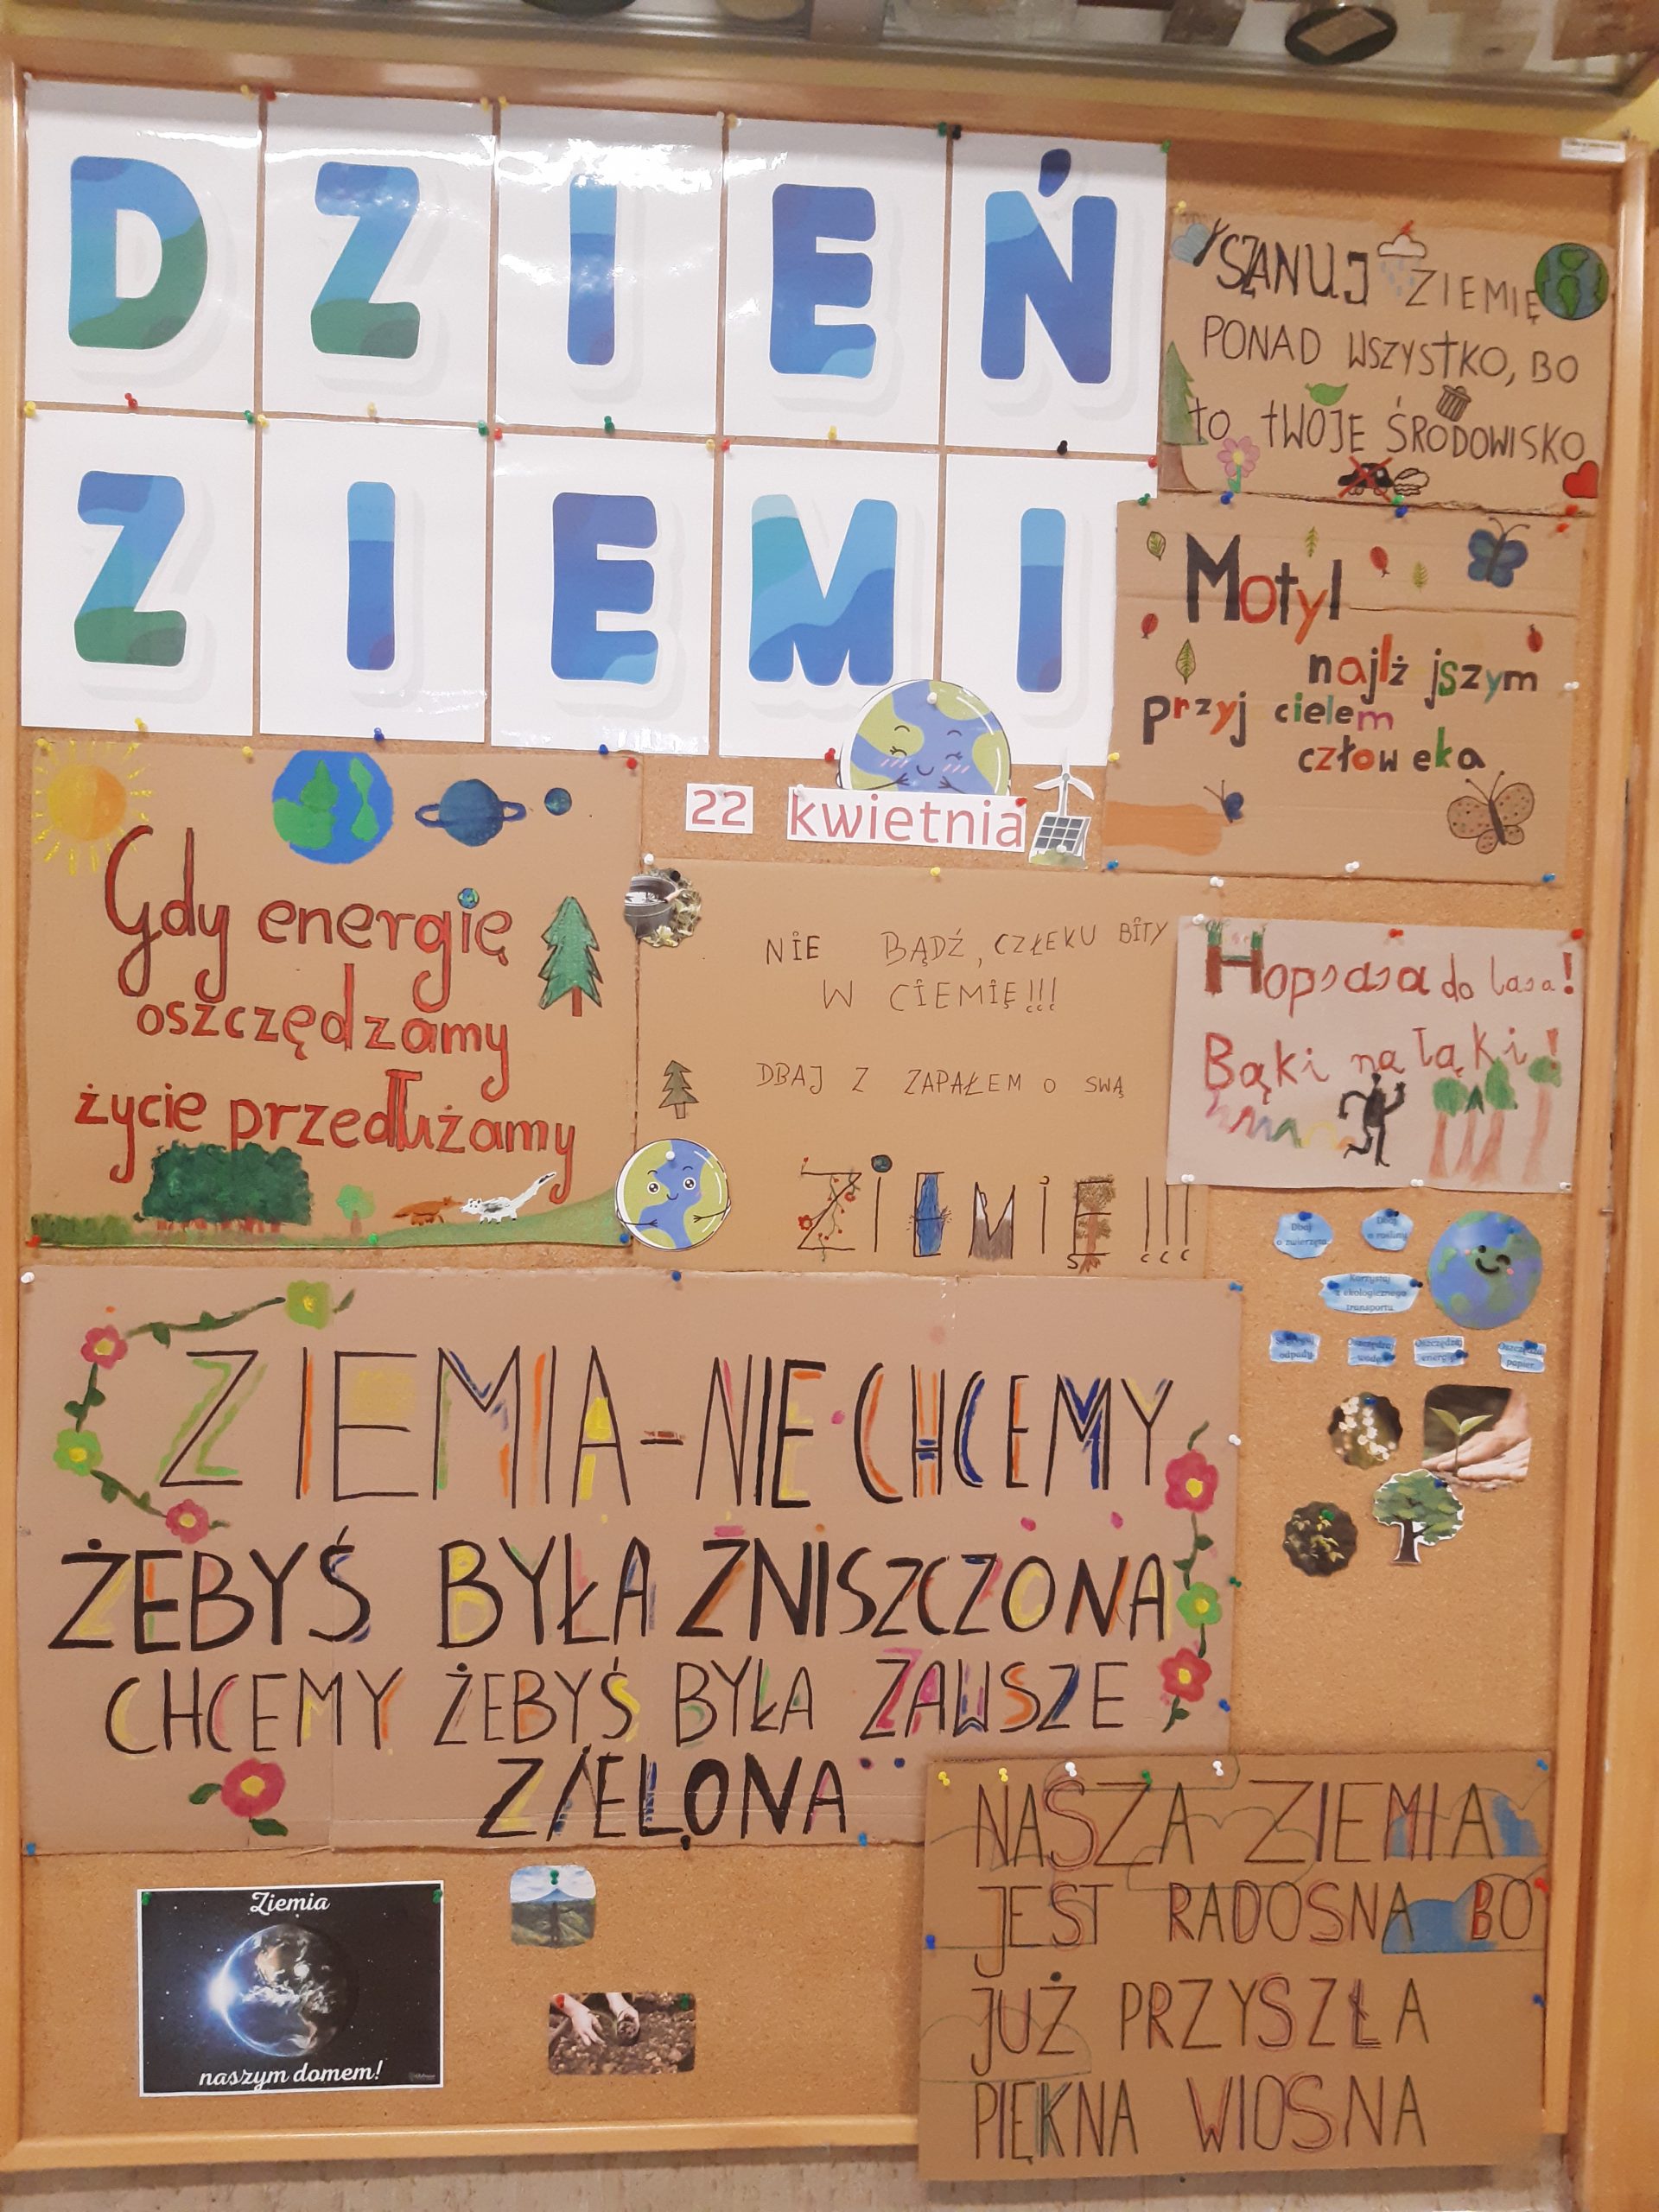 DZIEŃ
ZIEMI
22 kwietnia
SZANUJ ZIEMIĘ
PONAD WSZYSTKO, BO
to tWOJE ŚRODOWISKO
Motyl
najlż jszym
przyj cielem
człow eka
Gdy energię
oszczędzamy
życie przedłużamy
NIE BĄDŹ, CZŁEKU BITY
W CIEMIĘ!!!
DBAJ Z ZAPAŁEM O SWĄ
ZIEMIĘ!!!
Hopsasa do lasa!
Bąki na łąki!
Dbaj
o zwierzęta
Dbaj
o rośliny
Korzystaj
z ekologicznego
transportu
Segreguj
odpady
Oszczędzaj
wodę
Oszczędzaj
energię
Oszczędzaj
papier
ZIEMIA - NIE CHCEMY
ŻEBYŚ BYŁA ZNISZCZONA
CHCEMY ŻEBYŚ BYŁA ZAWSZE
ZIELONA
NASZA ZIEMIA
JEST RADOSNA BO
JUŻ PRZYSZŁA
PIĘKNA WIOSNA
Ziemia
naszym domem!